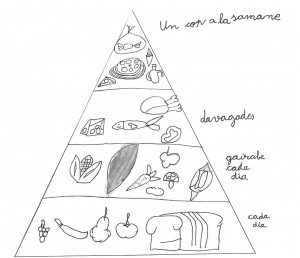 Un cop a la samane
davagades
gairabe
cada
dia
cada
dia